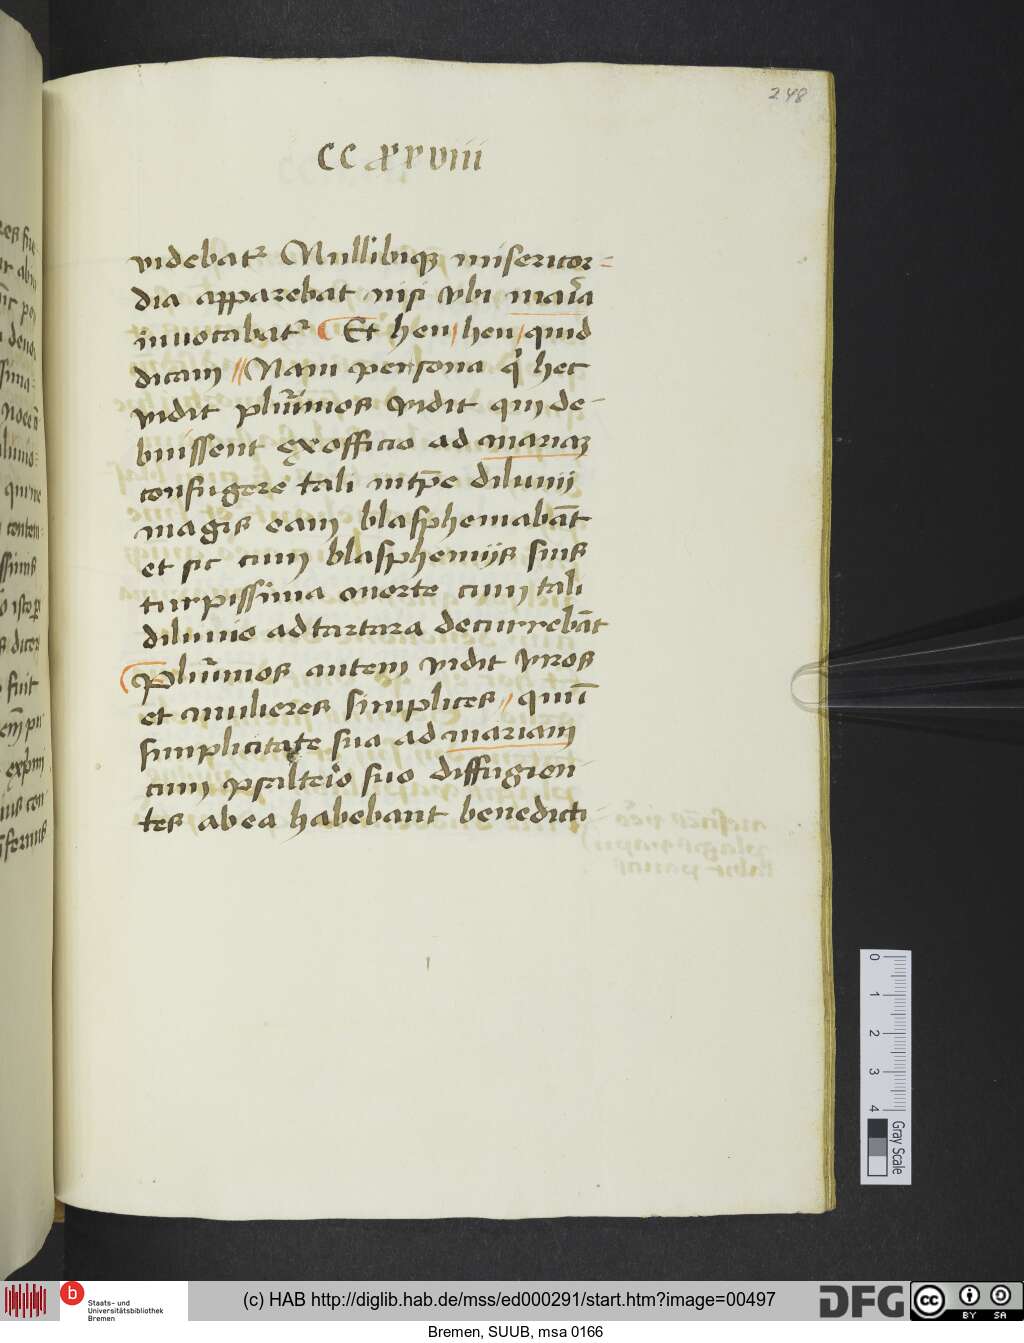 248
CCxxviii
videbatr Nullibiqz misericor=
dia apparebat nisi vbi maĩa
invocabatr Et heu / heu / quid
dicam // Nam persona q hec
vidit plurimos vidit qui de-
buissent ex officio ad mariaz
confugere tali intpe diluuij
magis eam blasphemabãt
et sic cum blasphemijs suis
turpissima morte cum tali
diluuio ad tartara decurrebãt
Plurimos autem vidit viros
et mulieres simplices // qui ĩ
simplicitate sua ad mariam
cum psalterio suo diffugien-
tes ab ea habebant benedicti
0 1 2 3 4
Gray Scale
b
Staats- und
Universitätsbibliothek
Bremen
(c) HAB http://diglib.hab.de/mss/ed000291/start.htm?image=00497
DFG
cc BY SA
Bremen, SUUB, msa 0166